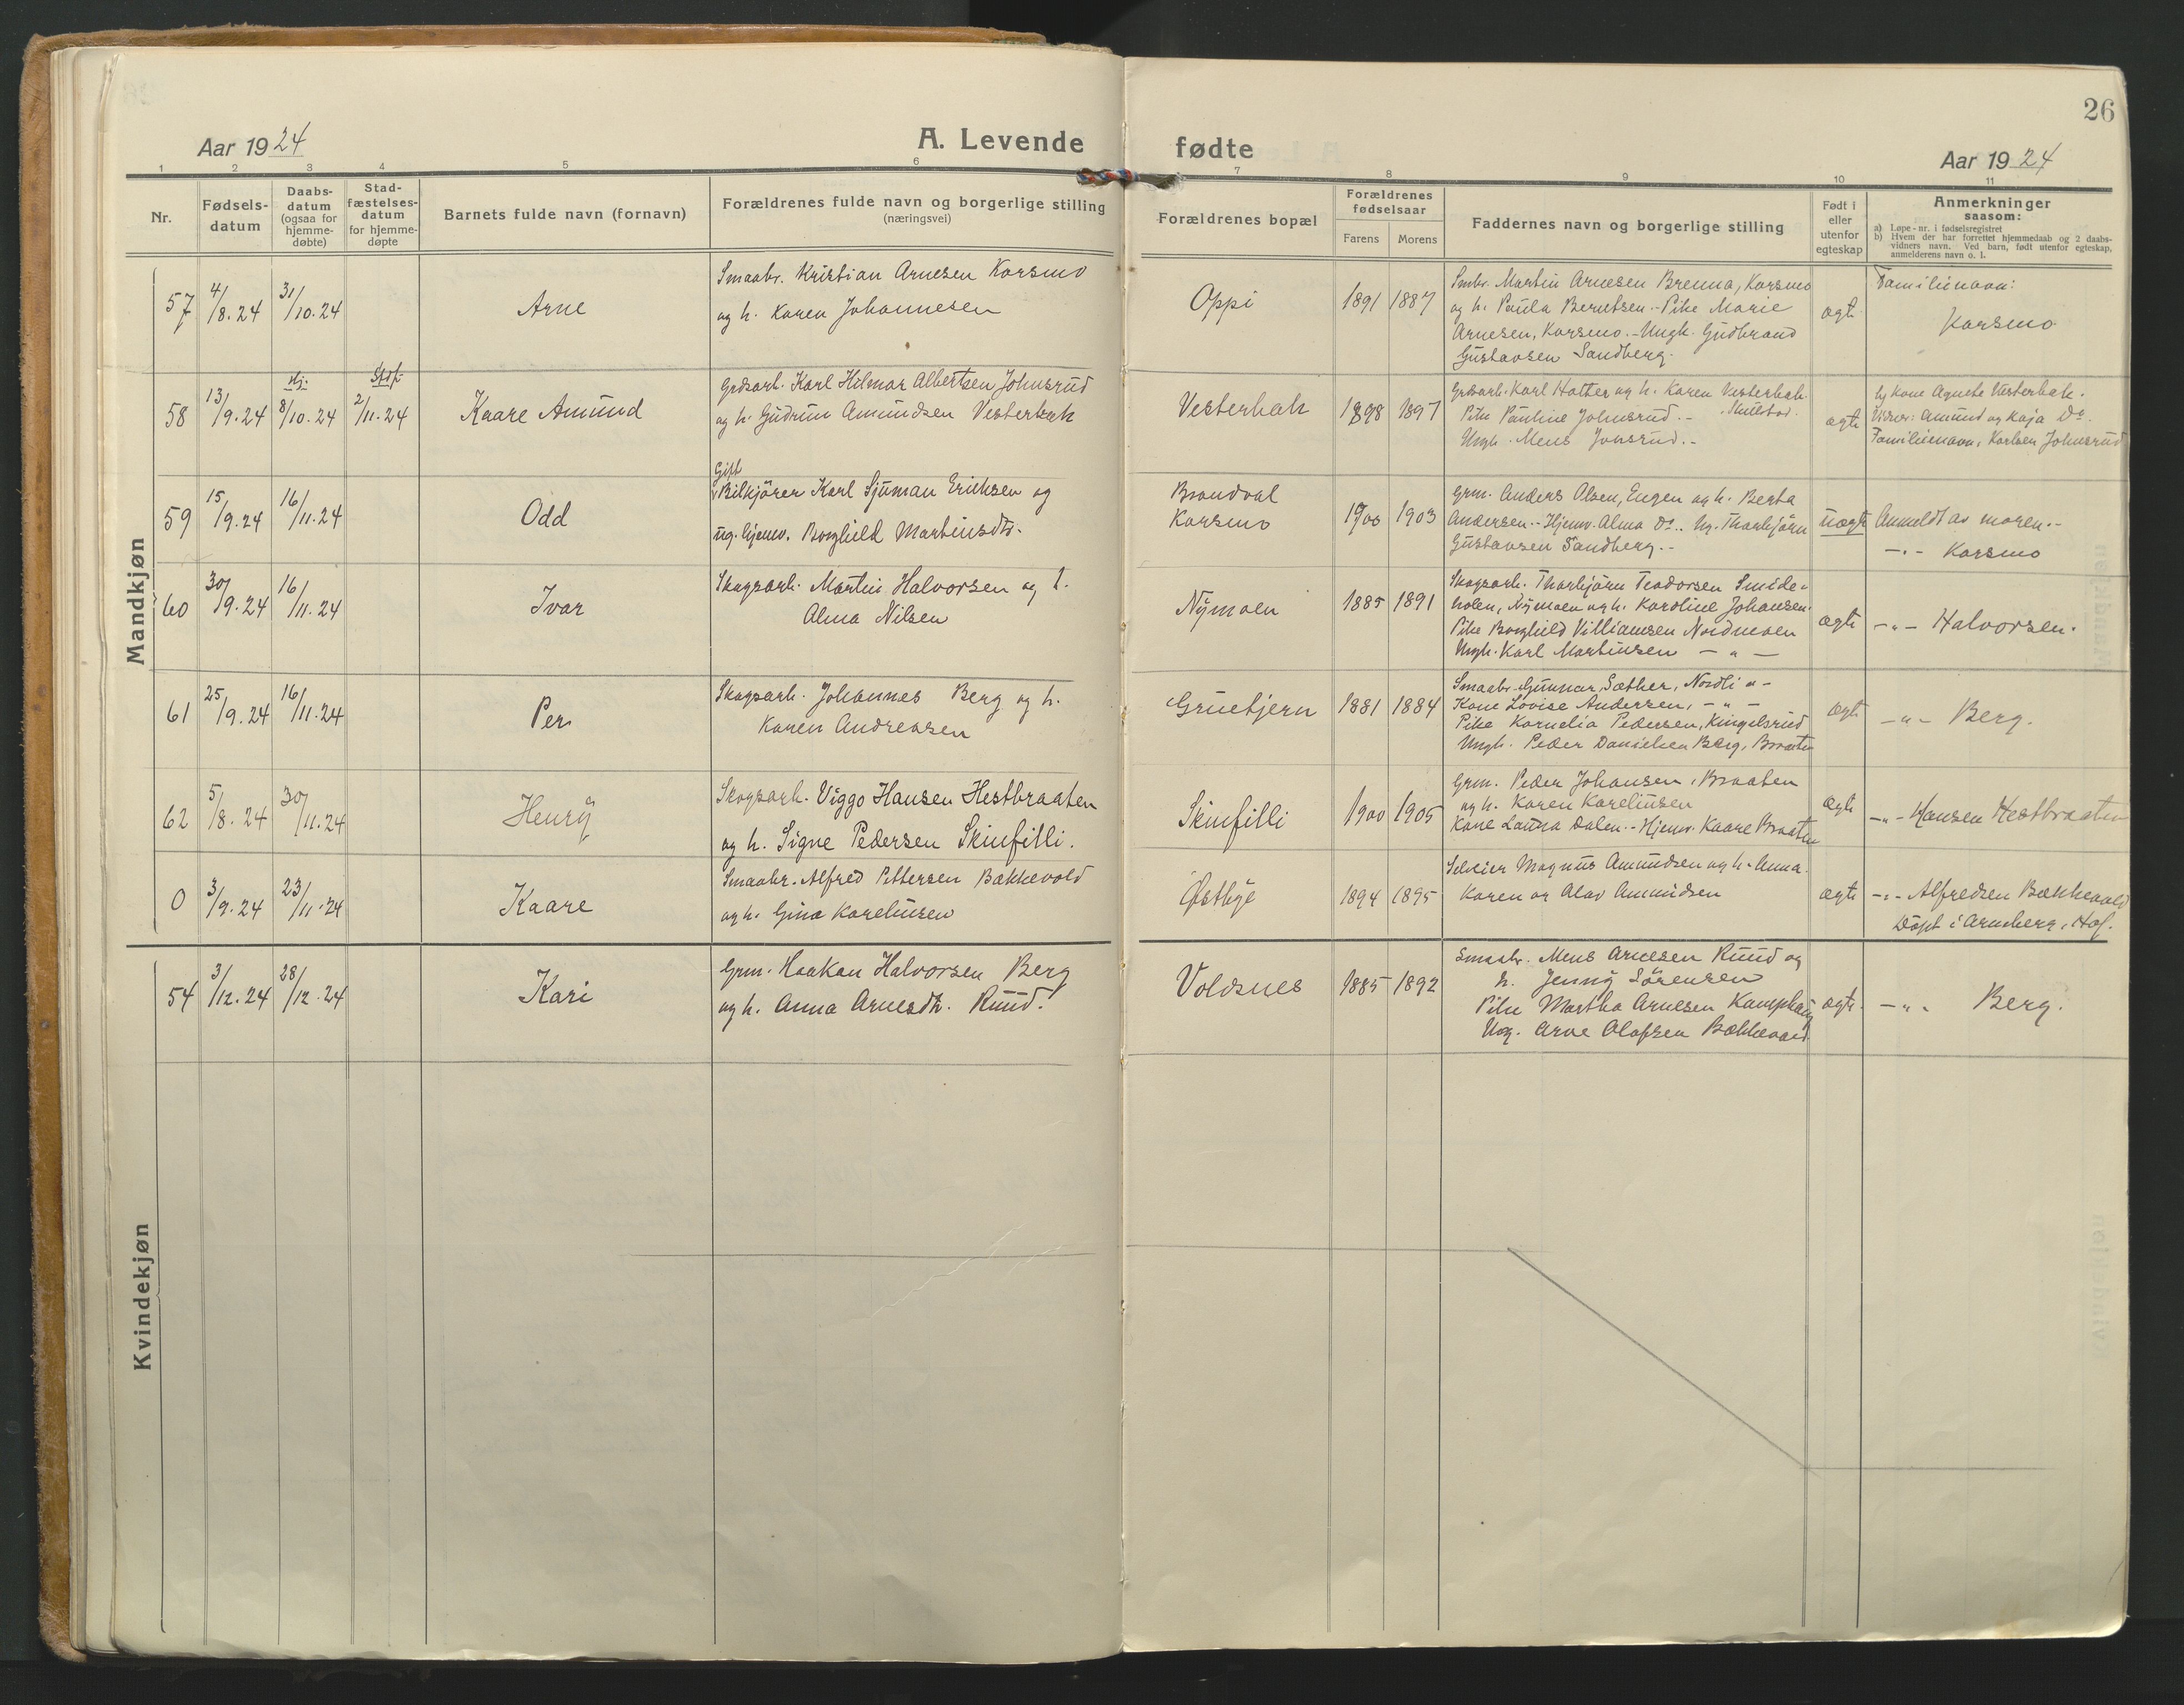 26
Aar 1924
A. Levende fødte
Aar 1924
1 2 3 4 5 6 7 8 9 10 11
Nr.
Fødsels-
datum
Daabs-
datum
(ogsaa for
hjemme-
døbte)
Stad-
fæstelses-
datum
for hjemme-
døpte
Barnets fulde navn (fornavn)
Forældrenes fulde navn og borgerlige stilling
(næringsvei)
Forældrenes bopæl
Forældrenes
fødselsaar
Farens Morens
Faddernes navn og borgerlige stilling
Født i
eller
utenfor
egteskap
Anmerkninger
saasom:
a) Løpe-nr. i fødselsregistret
b) Hvem der har forrettet hjemmedaab og 2 daabs-
vidners navn. Ved barn, født utenfor egteskap,
anmelderens navn o. l.
Mandkjøn
57 4/8.24 31/10.24 Arne
Smaabr. Kristian Arnesen Korsmo
og h. Karen Johannesen
Oppi 1891 1887
Smbr. Martin Arnesen Brenna, Korsmo
og h. Paula Berntsen.- Pike Marie
Arnesen, Korsmo.- Ungk. Gudbrand
Gustavsen Sandberg.
ægte
Familienavn:
Korsmo
58 13/9.24 Hj. 8/10.24 Stdf. 2/11.24 Kaare Amund
Grdsarb. Karl Hilmar Albertsen Johnsrud
og h. Gudrun Amundsen Vesterbak
Vesterbak 1898 1897
Grdsarb. Karl Holter og h. Karen Vesterbak.
Pike Pauline Johnsrud.-
Ungk. Mens Jonsrud.-
ægte
Kone Agnete Vesterbak.
Vidner: Amund og Kaja Do.
Familienavn: Karlsen Johnsrud
59 15/9.24 16/11.24 Odd
Gift
Bilkjører Karl Sjuman Eriksen og
ug. hjemv. Borghild Martinsdtr.
Brandval
Korsmo
1900 1903
Grm. Anders Olsen, Eugen og h. Berta
Andersen.- Hjemv. Alma Do.. Ug. Thorbjørn
Gustavsen Sandberg.-
uægte
Anmeldt av moren.-
-"- Korsmo
60 30/9.24 16/11.24 Ivar
Skogsarb. Martin Halvorsen og h.
Alma Nilsen
Nymoen 1885 1891
Skogsarb. Thorbjørn Teodorsen Smide-
holen, Nymoen og h. Karoline Johansen.
Pike Borghild Villiamsen Nordmoen
Ungk. Karl Martinsen - " -
ægte
-"- Halvorsen.
61 25/9.24 16/11.24 Per
Skogsarb. Johannes Berg og h.
Karen Andreasen
Gruetjern 1881 1884
Smaabr. Gunnar Sæther, Nordli "-
Kone Lovise Andersen, - " -
Pike Kornelia Pedersen, Kingelsrud
Ungk. Peder Danielsen Berg, Braaten
ægte
-"- Berg.
62 5/8.24 30/11.24 Henry
Skogsarb. Viggo Hansen Hestbraaten
og h. Signe Pedersen Skinfilli.
Skinfilli 1900 1905
Grm. Peder Johansen, Braaten
og h. Karen Karelinsen
Kone Laura Dalen.- Hjemv. Kaare Braaten
ægte
-"- Hansen Hestbraaten
0 3/9.24 23/11.24 Kaare
Smaabr. Alfred Pettersen Bakkevold
og h. Gina Karelinsen
Østbye 1894 1895
Selveier Magnus Amundsen og h. Anna.
Karen og Alav Amundsen
ægte
-"- Alfredsen Bakkevold
Døpt i Arneberg, Hof.
Kvindekjøn
54 3/12.24 28/12.24 Kari
Grm. Haakon Halvorsen Berg
og h. Anna Arnesdtr. Ruud.
Voldsnes 1885 1892
Smaabr. Mens Arnesen Ruud og
h. Jenny Sørensen
Pike Martha Arnesen Kamphaug
Ung. Arve Olafsen Bakkevold
ægte.
-"- Berg.